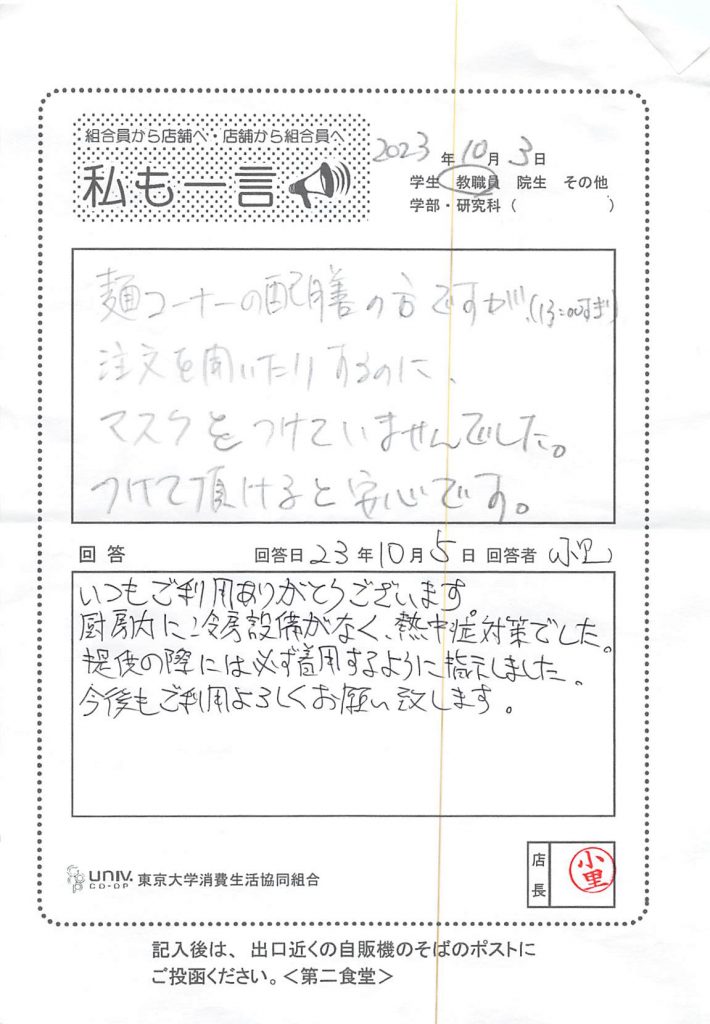 組合員から店舗へ・店舗から組合員へ
私も一言
2023年10月3日
学生 教職員 院生 その他
学部・研究科( )
麺コーナーの配膳の方ですが、(13:00すぎ)
注文を聞いたりするのに、
マスクをつけていませんでした。
つけて頂けると安心です。
回答 回答日23年10月5日 回答者 小里
いつもご利用ありがとうございます。
厨房内に冷房設備がなく、熱中症対策でした。
提供の際には必ず着用するように指示しました。
今後もご利用よろしくお願い致します。
UNIV. CO-OP 東京大学消費生活協同組合
店長 小里
記入後は、出口近くの自販機のそばのポストに
ご投函ください。<第二食堂>